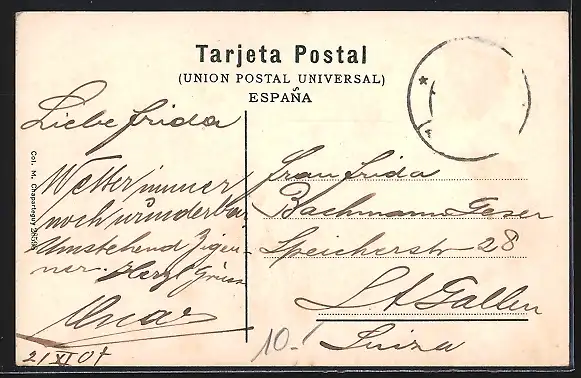 Tarjeta Postal
(UNION POSTAL UNIVERSAL)
ESPAÑA
Liebe Frida
Wetter immer
noch wunderbar
Umstehend Zigeu-
ner. Herzl Grüsse
21 XI 07
Col. M. Chaparteguy
Frau Frida
Bachmann Geser
Speicherstr 28
St Gallen
Suiza
10.-